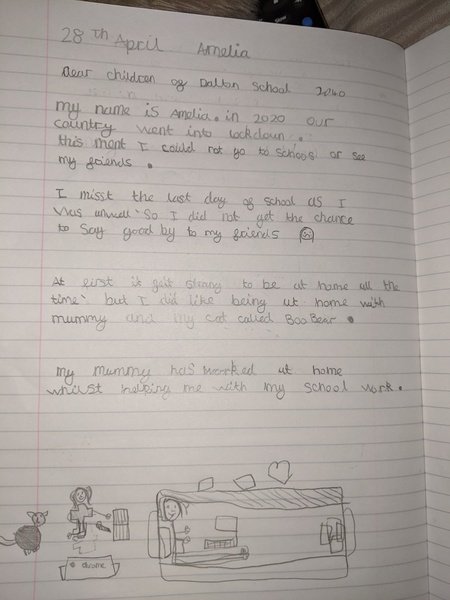 28th April Amelia
Dear children of Dalton School 2040
my name is Amelia. in 2020 our
country went into lockdown.
this ment I could not go to school or see
my friends.
I misst the last day of school as I
was unwell so I did not get the chance
to say good by to my friends
At first it felt strang to be at home all the
time but I did like being at home with
mummy and my cat called Boo Bear.
my mummy has worked at home
whilst helping me with my school work.